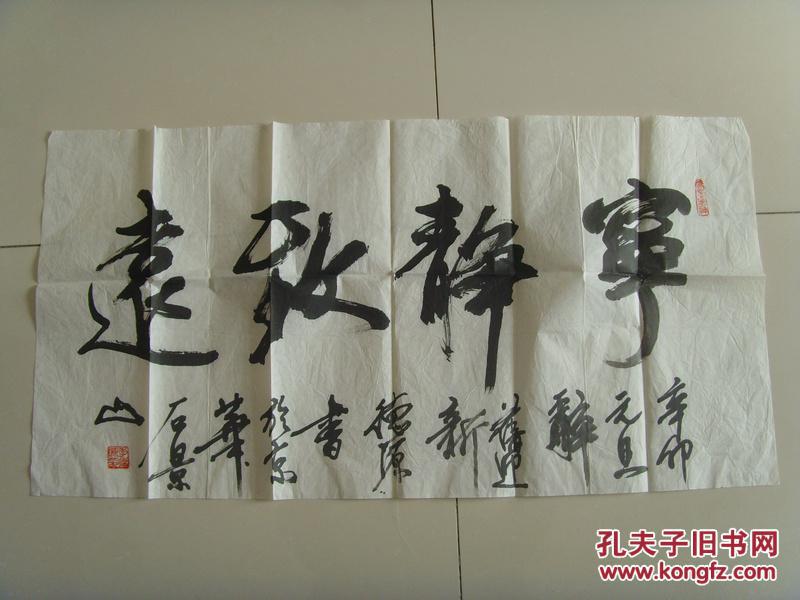 寧靜致遠
辛卯
元旦
辭
舊迎
新
德源
書
於京
華
石景
山
孔夫子旧书网
www.kongfz.com